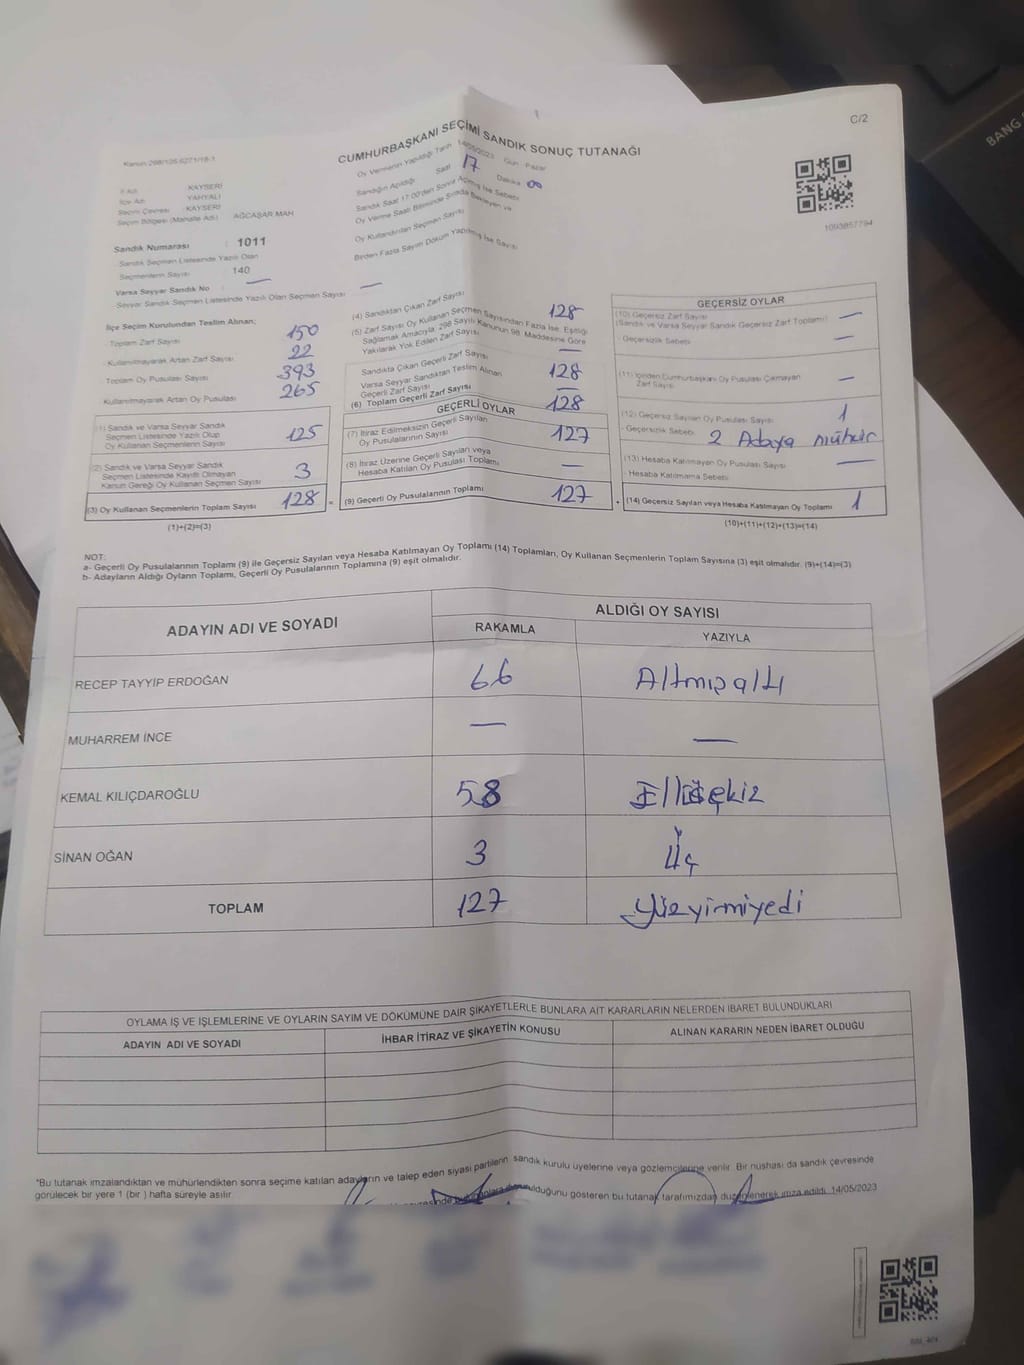 BANG
C/2
CUMHURBAŞKANI SEÇİMİ SANDIK SONUÇ TUTANAĞI
Kanun 298/105-6271/18-1
Oy Vermenin Yapıldığı Tarih 14/05/2023 Gün Pazar
İl Adı KAYSERİ
İlçe Adı YAHYALI
Seçim Çevresi KAYSERİ
Seçim Bölgesi (Mahalle Adı) AĞCAŞAR MAH
Sandığın Açıldığı Saat 17 Dakika 00
Sandık Saat 17:00'den Sonra Açılmış İse Sebebi
Oy Verme Saati Bitiminde Sırada Bekleyen ve
Oy Kullandırılan Seçmen Sayısı
Birden Fazla Sayım Döküm Yapılmış İse Sayısı
1093857794
Sandık Numarası : 1011
Sandık Seçmen Listesinde Yazılı Olan
Seçmenlerin Sayısı 140
Varsa Seyyar Sandık No : —
Seyyar Sandık Seçmen Listesinde Yazılı Olan Seçmen Sayısı —
İlçe Seçim Kurulundan Teslim Alınan;
Toplam Zarf Sayısı 150
Kullanılmayarak Artan Zarf Sayısı 22
Toplam Oy Pusulası Sayısı 393
Kullanılmayarak Artan Oy Pusulası 265
(1) Sandık ve Varsa Seyyar Sandık
Seçmen Listesinde Yazılı Olup
Oy Kullanan Seçmenlerin Sayısı 125
(2) Sandık ve Varsa Seyyar Sandık
Seçmen Listesinde Kayıtlı Olmayan
Kanun Gereği Oy Kullanan Seçmen Sayısı 3
(3) Oy Kullanan Seçmenlerin Toplam Sayısı 128
(1)+(2)=(3)
(4) Sandıktan Çıkan Zarf Sayısı 128
(5) Zarf Sayısı Oy Kullanan Seçmen Sayısından Fazla İse, Eşitliği
Sağlamak Amacıyla; 298 Sayılı Kanunun 98. Maddesine Göre
Yakılarak Yok Edilen Zarf Sayısı —
Sandıkta Çıkan Geçerli Zarf Sayısı 128
Varsa Seyyar Sandıktan Teslim Alınan
Geçerli Zarf Sayısı —
(6) Toplam Geçerli Zarf Sayısı 128
GEÇERLİ OYLAR
(7) İtiraz Edilmeksizin Geçerli Sayılan
Oy Pusulalarının Sayısı 127
(8) İtiraz Üzerine Geçerli Sayılan veya
Hesaba Katılan Oy Pusulası Toplamı —
= (9) Geçerli Oy Pusulalarının Toplamı 127
GEÇERSİZ OYLAR
(10) Geçersiz Zarf Sayısı
(Sandık ve Varsa Seyyar Sandık Geçersiz Zarf Toplamı) —
- Geçersizlik Sebebi —
(11) İçinden Cumhurbaşkanı Oy Pusulası Çıkmayan
Zarf Sayısı —
(12) Geçersiz Sayılan Oy Pusulası Sayısı 1
- Geçersizlik Sebebi 2 Adaya mühür
(13) Hesaba Katılmayan Oy Pusulası Sayısı —
- Hesaba Katılmama Sebebi
+ (14) Geçersiz Sayılan veya Hesaba Katılmayan Oy Toplamı 1
(10)+(11)+(12)+(13)=(14)
NOT:
a- Geçerli Oy Pusulalarının Toplamı (9) ile Geçersiz Sayılan veya Hesaba Katılmayan Oy Toplamı (14) Toplamları, Oy Kullanan Seçmenlerin Toplam Sayısına (3) eşit olmalıdır. (9)+(14)=(3)
b- Adayların Aldığı Oyların Toplamı, Geçerli Oy Pusulalarının Toplamına (9) eşit olmalıdır.
ADAYIN ADI VE SOYADI
ALDIĞI OY SAYISI
RAKAMLA YAZIYLA
RECEP TAYYİP ERDOĞAN 66 Altmışaltı
MUHARREM İNCE — —
KEMAL KILIÇDAROĞLU 58 Ellisekiz
SİNAN OĞAN 3 Üç
TOPLAM 127 Yüzyirmiyedi
OYLAMA İŞ VE İŞLEMLERİNE VE OYLARIN SAYIM VE DÖKÜMÜNE DAİR ŞİKAYETLERLE BUNLARA AİT KARARLARIN NELERDEN İBARET BULUNDUKLARI
ADAYIN ADI VE SOYADI İHBAR İTİRAZ VE ŞİKAYETİN KONUSU ALINAN KARARIN NEDEN İBARET OLDUĞU
"Bu tutanak imzalandıktan ve mühürlendikten sonra seçime katılan adayların ve talep eden siyasi partilerin sandık kurulu üyelerine veya gözlemcilerine verilir. Bir nüshası da sandık çevresinde
görülecek bir yere 1 (bir ) hafta süreyle asılır.
bulunduğunu gösteren bu tutanak tarafımızdan düzenlenerek imza edildi. 14/05/2023